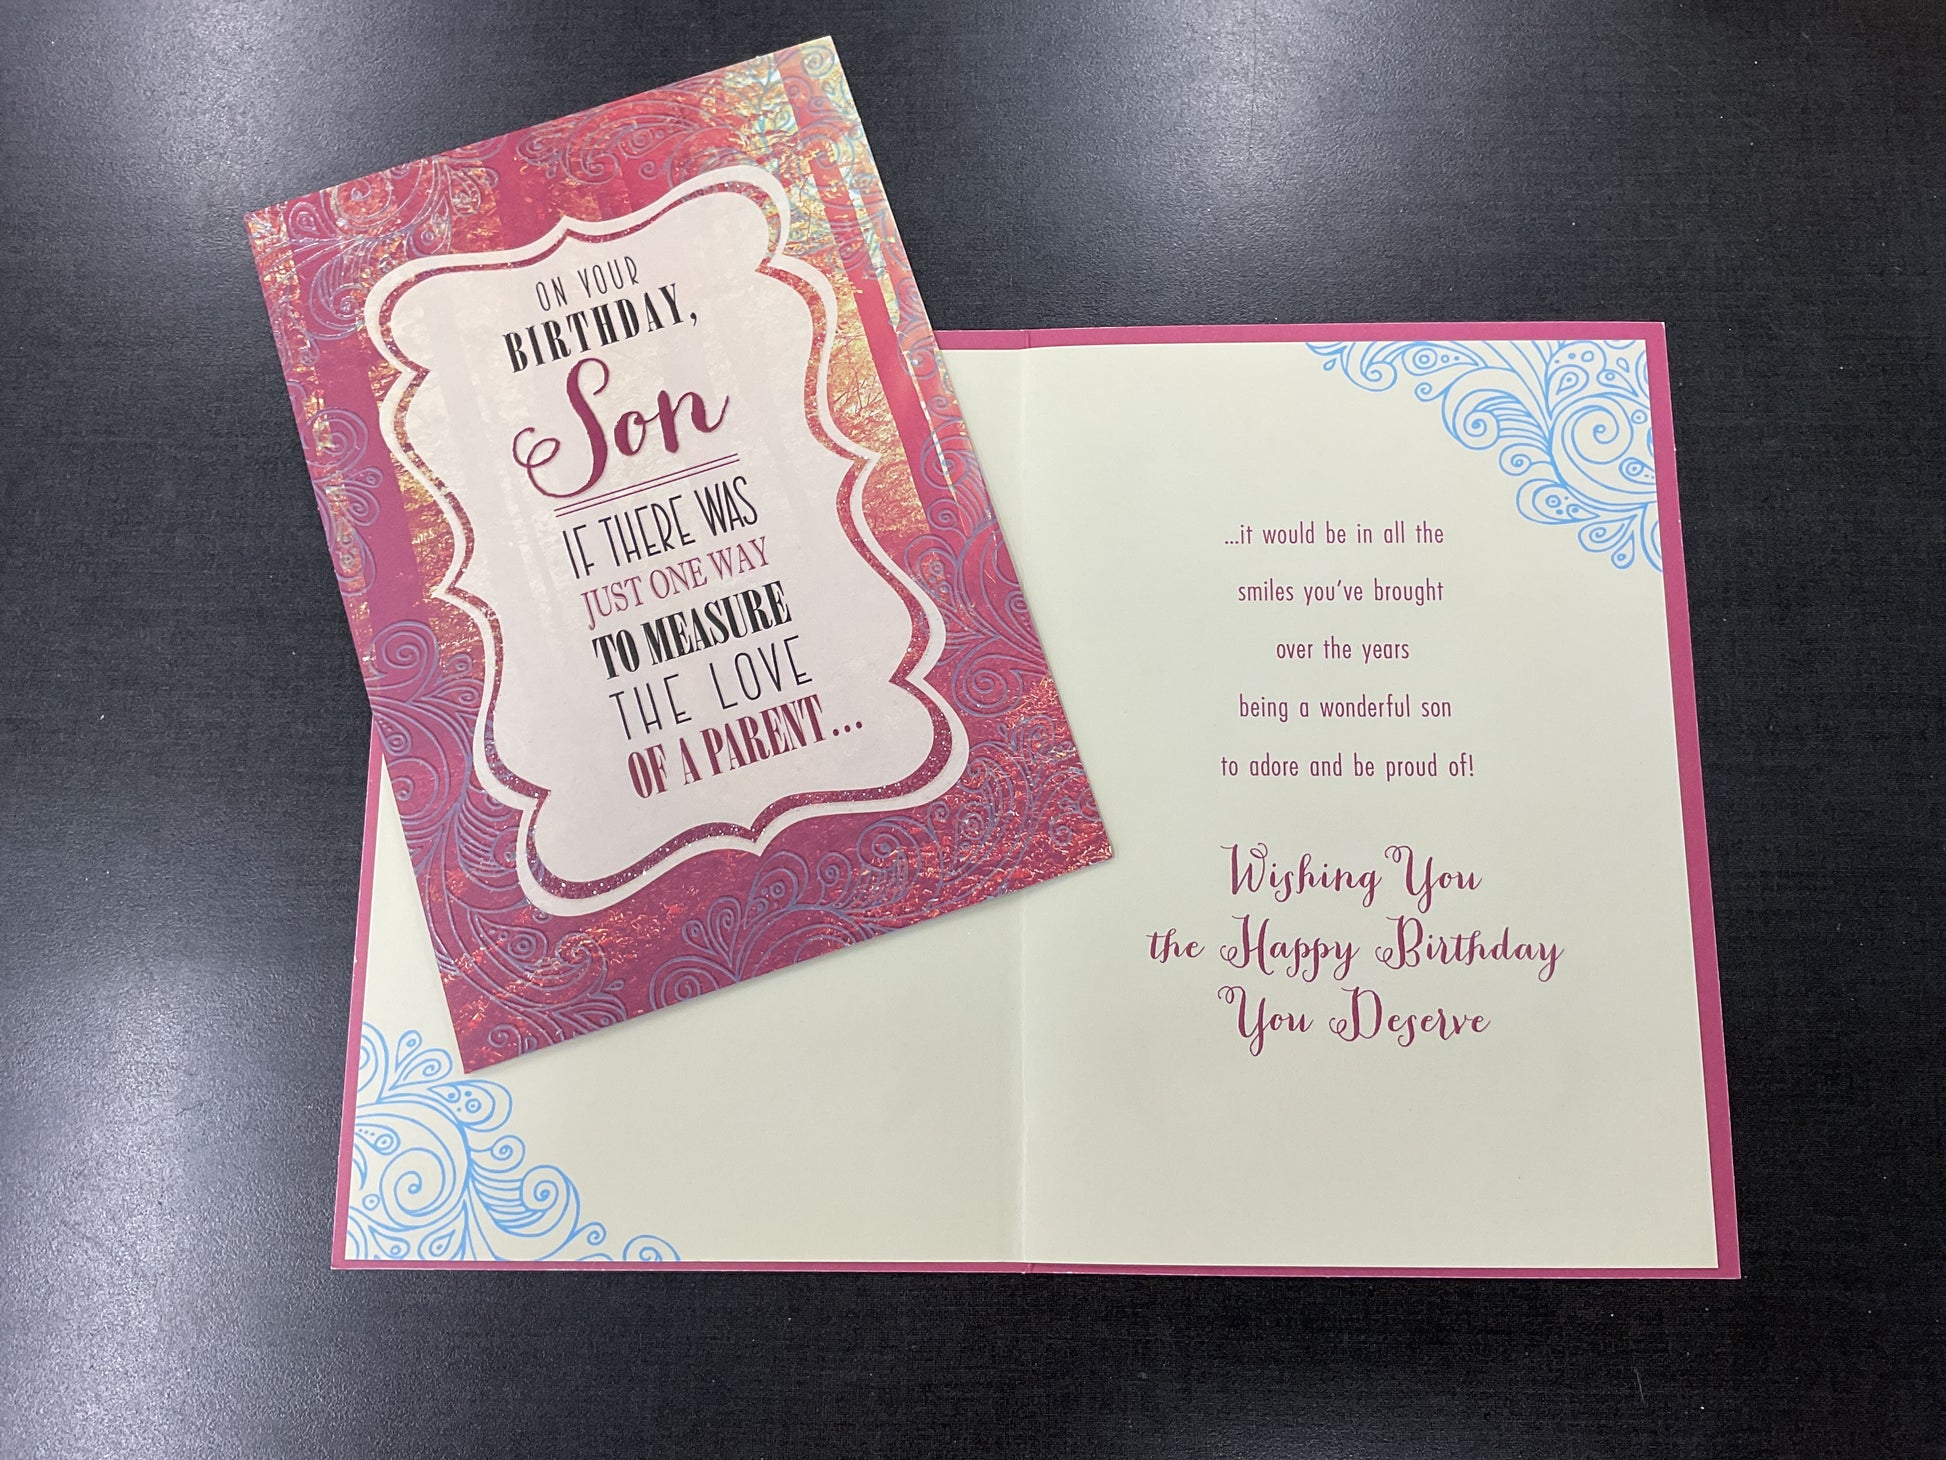 ON YOUR
BIRTHDAY,
Son
IF THERE WAS
JUST ONE WAY
TO MEASURE
THE LOVE
OF A PARENT...
...it would be in all the
smiles you've brought
over the years
being a wonderful son
to adore and be proud of!
Wishing You
the Happy Birthday
You Deserve